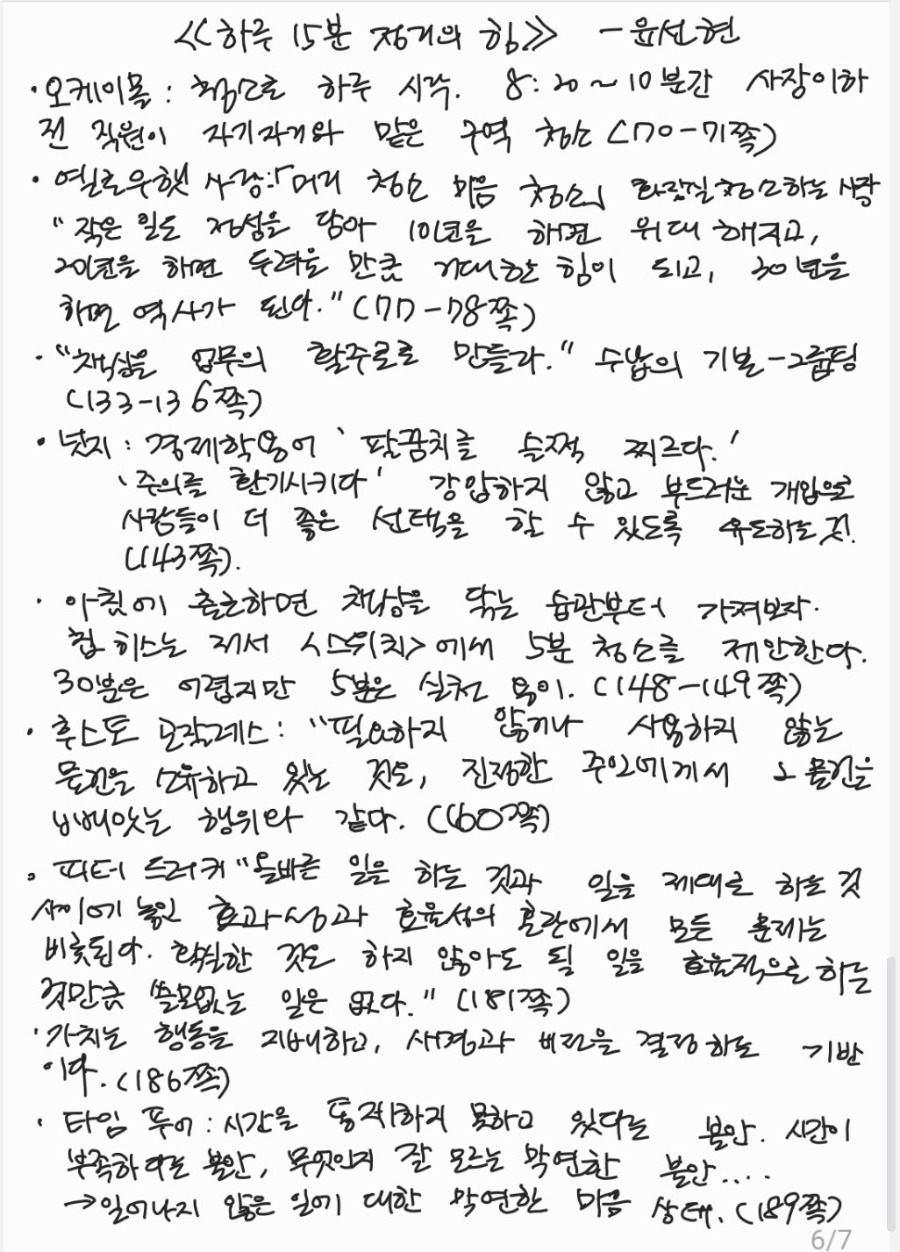 ≪하루 15분 정리의 힘≫ - 윤선현
· 오케이몰 : 청소로 하루 시작. 8:20~10분간 사장이하
전 직원이 자기자리와 맡은 구역 청소 (70-71쪽)
· 옐로우햇 사장:「머리 청소 마음 청소」 화장실청소하는 사장
"작은 일도 정성을 담아 10년을 하면 위대해지고,
20년을 하면 두려울 만큼 거대한 힘이 되고, 30년을
하면 역사가 된다." (77-78쪽)
· "책상을 업무의 활주로로 만들라." 수납의 기본-그룹핑
(133-136쪽)
· 넛지 : 경제학용어 '팔꿈치를 슬쩍 찌르다.'
'주의를 환기시키다' 강압하지 않고 부드러운 개입으로
사람들이 더 좋은 선택을 할 수 있도록 유도하는 것.
(143쪽).
· 아침에 출근하면 책상을 닦는 습관부터 가져보자.
칩 히스는 저서 <스위치>에서 5분 청소를 제안한다.
30분은 어렵지만 5분은 실천 용이. (148-149쪽)
· 후스토 모랄레스 : "필요하지 않거나 사용하지 않는
물건을 소유하고 있는 것은, 진정한 주인에게서 그 물건을
빼앗는 행위와 같다. (160쪽)
· 피터 드러커 "올바른 일을 하는 것과 일을 제대로 하는 것
사이에 놓인 효과성과 효율성의 혼란에서 모든 문제는
비롯된다. 확실한 것은 하지 않아도 될 일을 효율적으로 하는
것만큼 쓸모없는 일은 없다." (181쪽)
· 가치는 행동을 지배하고, 사명과 비전을 결정하는 기반
이다. (186쪽)
· 타임 푸어 : 시간을 통제하지 못하고 있다는 불안. 시간이
부족하다는 불안, 무엇인지 잘 모르는 막연한 불안....
→일어나지 않은 일에 대한 막연한 마음 상태. (189쪽)
6/7